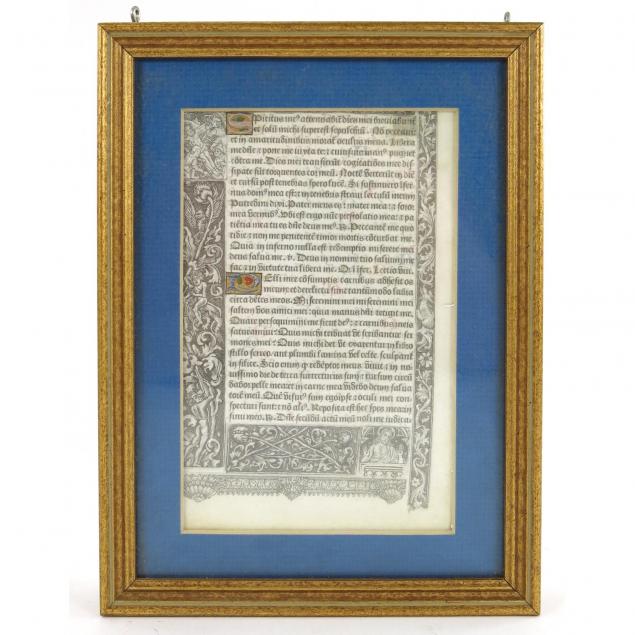 Spiritus meꝰ attenuabit̃ dies mei breviabunt̃
et solũ michi superest sepulchrũ. Nõ peccavi:
et in amaritudinibus morat̃ oculus meus. Libera
me dñe ⁊ pone me iuxta te: ⁊ cuiusuis manꝰ pugnet
cõtra me. Dies mei transierũt cogitatiões mee dis-
sipate sũt torquentes cor meũ. Noctẽ verterũt in diẽ
et rursũ post tenebras spero lucẽ. Si sustinuero ifer-
nus domꝰ mea est: ⁊ in tenebris stravi lectulũ meũ
Putredini dixi. Pater meus es: mater mea: ⁊ soror
mea vermibꝰ. Ubi est ergo nũc prestolatio mea: ⁊ pa-
ciẽtia mea tu es dñe deus meꝰ. R. Peccantẽ me quo
tidie: ⁊ non me penitentẽ timor mortis cõturbat me.
Quia in inferno nulla est redemptio miserere mei
et salva me. v. Deus in nomine tuo salvum me
fac: ⁊ in virtute tua libera me. Lectio
Pelli mee cõsumptis carnibus adhesit os
meum: et derelicta sunt tantũmodo labia
circa dẽtes meos. Miseremini mei miseremini mei
saltem vos amici mei: quia manus dñi tetigit me.
Quare persequimini me sicut deꝰ: ⁊ carnibus meis
saturamini: Quis michi tribuat ut scribantur ser
mones mei: Quis michi det ut exarentur in libro
stilo ferreo: aut plumbi lamina vel celte sculpant̃
in silice. Scio enim ꝙ redẽptor meus vivit: ⁊ in no
vissimo die de terra surrecturus sum: ⁊ rursum circũ
dabor pelle mea: et in carne mea videbo deum salva
torẽ meũ. Quẽ visurꝰ sum ego ipse ⁊ oculi mei con
specturi sunt: ⁊ nõ aliꝰ. Reposita est hec spes mea in
sinu meo. R. Dñe secũdũ actũ meũ noli me iudica-